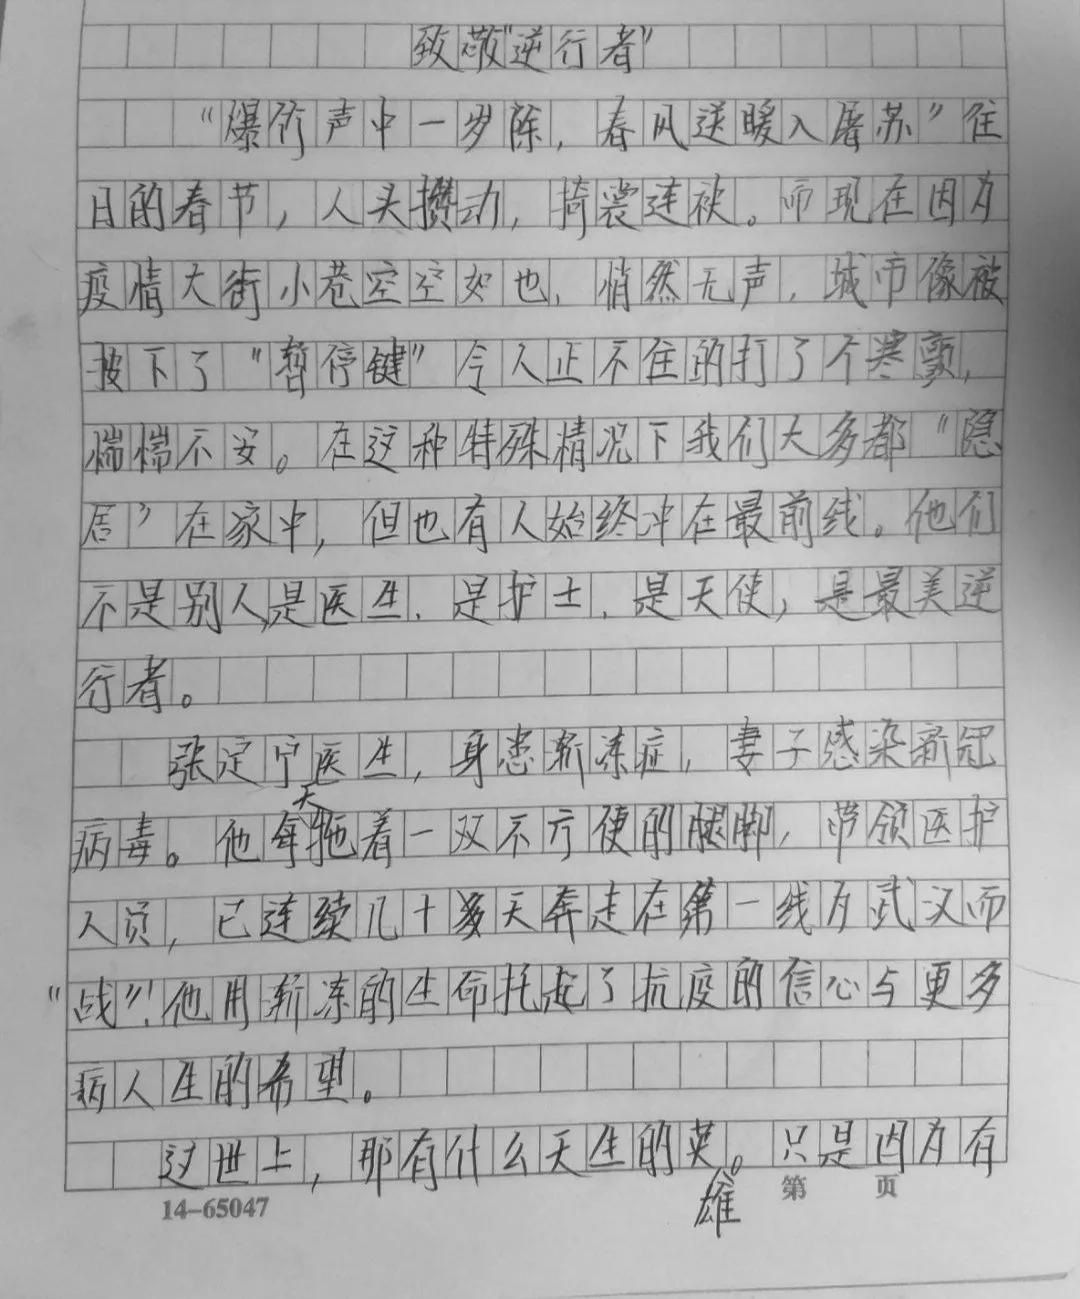 致敬"逆行者"
"爆竹声中一岁除,春风送暖入屠苏"往
日的春节,人头攒动,掎裳连袂。而现在因为
疫情大街小巷空空如也,悄然无声,城市像被
按下了"暂停键"令人止不住的打了个寒颤,
惴惴不安。在这种特殊情况下我们大多都"隐
居"在家中,但也有人始终冲在最前线。他们
不是别人,是医生,是护士,是天使,是最美逆
行者。
张定宇医生,身患渐冻症,妻子感染新冠
病毒。他每天拖着一双不方便的腿脚,带领医护
人员,已连续几十多天奔走在第一线为武汉而
"战"!他用渐冻的生命托起了抗疫的信心与更多
病人生的希望。
这世上,那有什么天生的英雄。只是因为有
14-65047
第 页